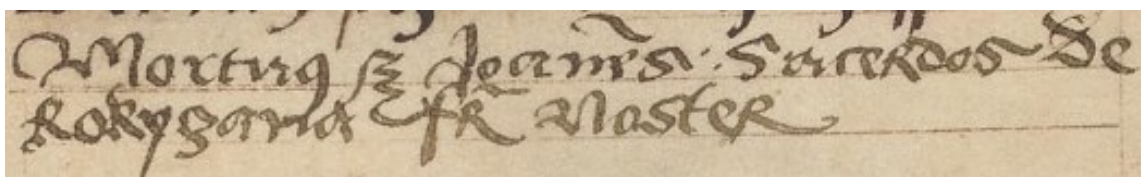 Mortuꝰ ꝫ Joan̄es · Sacerdos De
Rokyzana fr̄ Noster